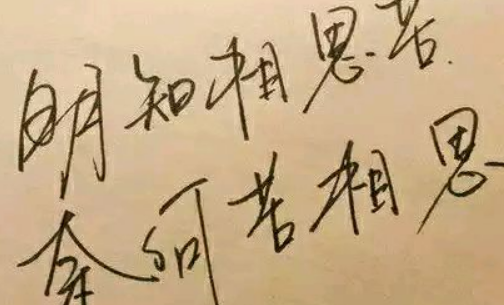 明知相思苦
奈何苦相思